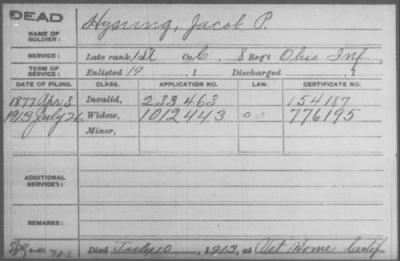 DEAD
NAME OF SOLDIER: Hysung, Jacob P.
SERVICE: Late rank, Co. C, 8 Reg't Ohio Inf
TERM OF SERVICE: Enlisted 19, 1 Discharged , 1
DATE OF FILING. CLASS. APPLICATION NO. LAW. CERTIFICATE NO.
1877 Apr 3 Invalid, 233 463 154187
1913 July 26 Widow, 1012443 776195
Minor,
ADDITIONAL SERVICES:
REMARKS:
Died July 10, 1913, at Vet Home Calif